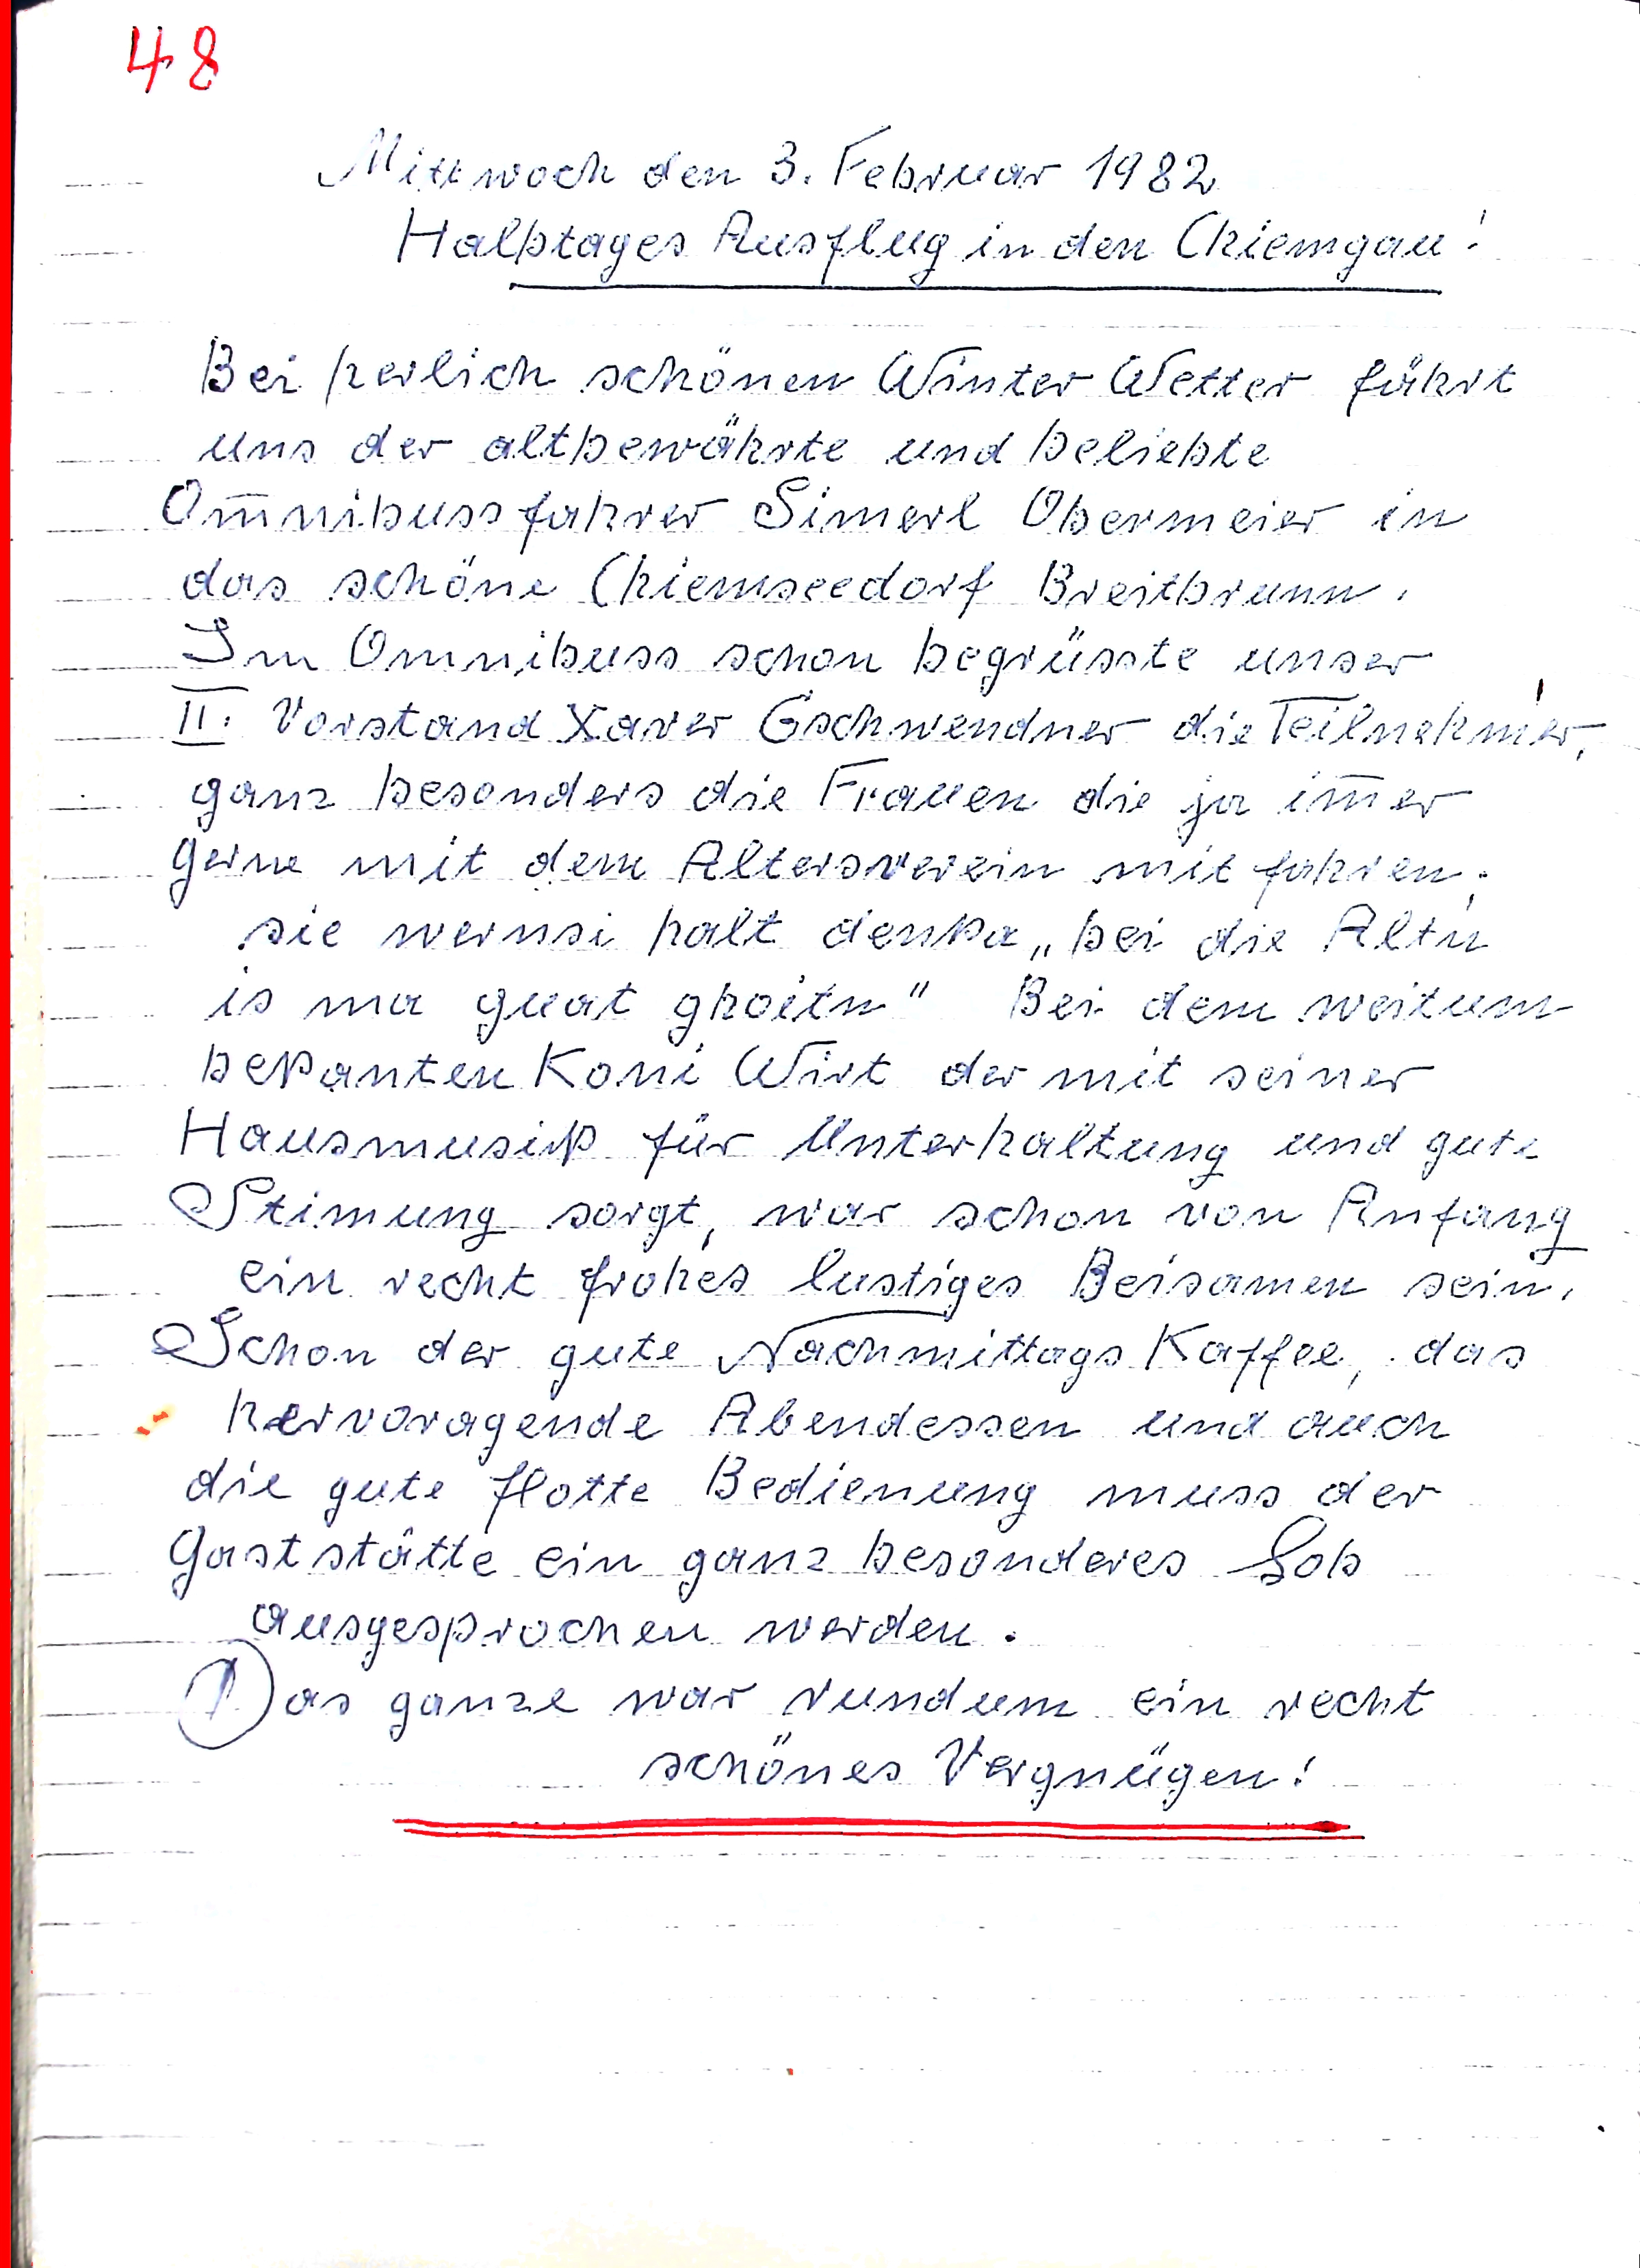 48
Mittwoch den 3. Februar 1982
Halbtages Ausflug in den Chiemgau!
Bei herlich schönen Winter Wetter fährt
uns der altbewährte und beliebte
Om̅nibussfahrer Simerl Obermeier in
das schöne Chiemseedorf Breitbrunn.
Im Omnibuss schon begrüsste unser
II. Vorstand Xaver Gschwendner die Teilnehmer,
ganz besonders die Frauen die ja im̅er
gerne mit dem Altersverein mit fahren;
sie wernsi halt denka „bei die Altn
is ma guat ghoitn" Bei dem weitum
bekanten Koni Wirt der mit seiner
Hausmusik für Unterhaltung und gute
Stimung sorgt, war schon von Anfang
ein recht frohes lustiges Beisamen sein.
Schon der gute Nachmittags Kaffee, das
hervoragende Abendessen und auch
die gute flotte Bedienung muss der
Gaststätte ein ganz besonderes Lob
ausgesprochen werden.
Das ganze war rundum ein recht
schönes Vergnügen!